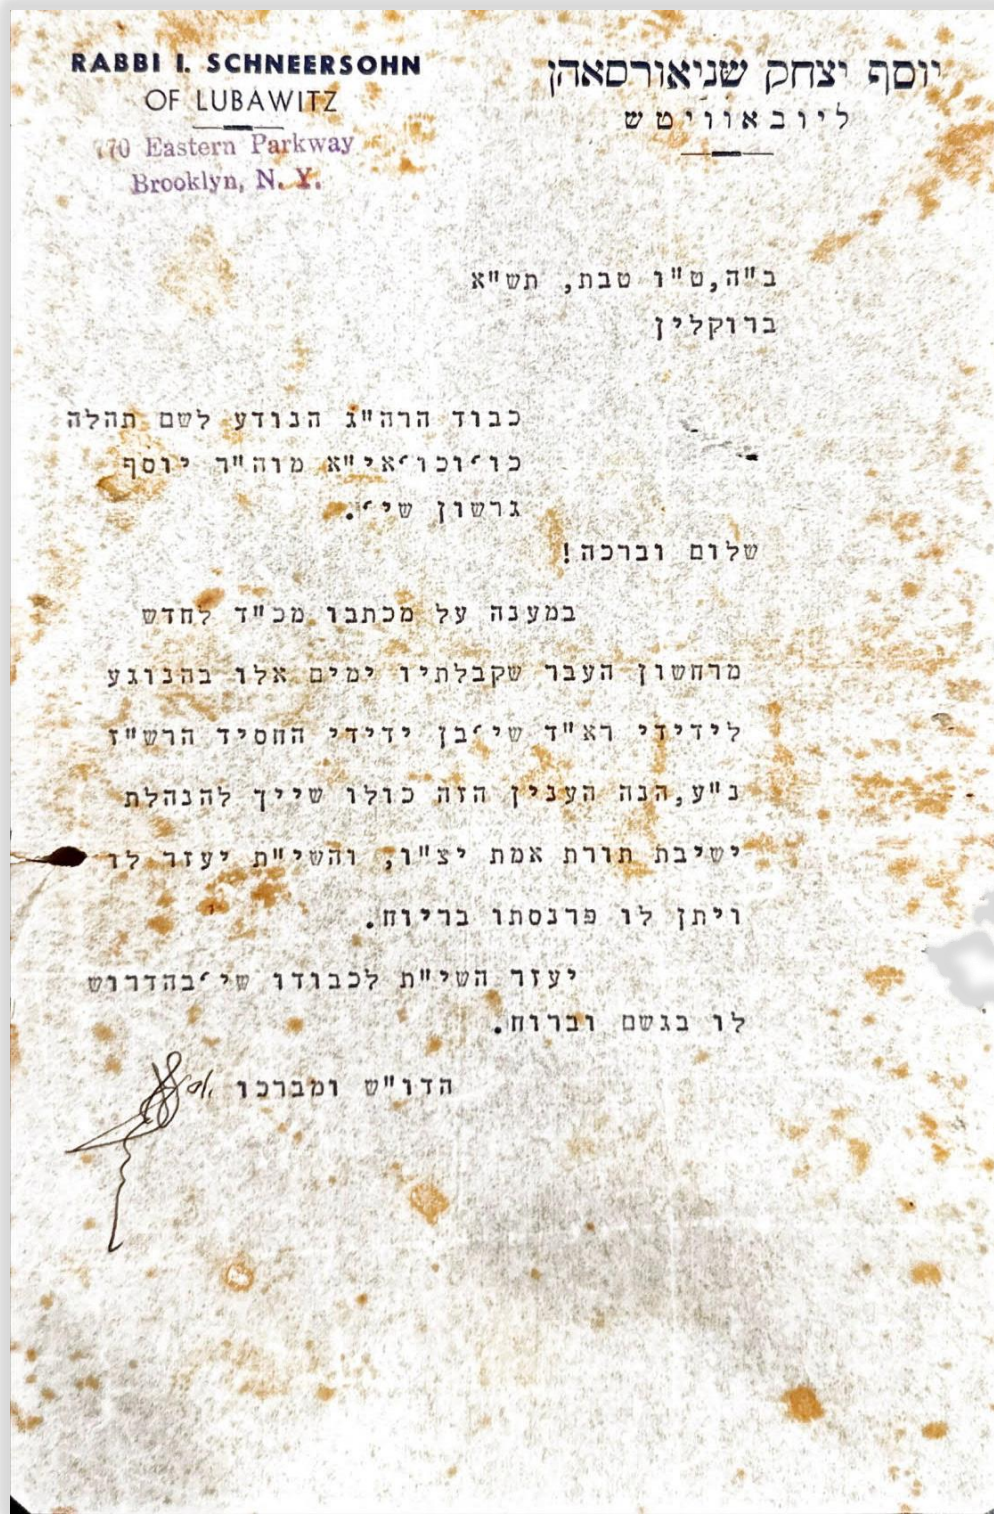 RABBI I. SCHNEERSOHN
OF LUBAWITZ
770 Eastern Parkway
Brooklyn, N. Y.
יוסף יצחק שניאורסאהן
ליובאוויטש
ב"ה,ט"ו טבת, תש"א
ברוקלין
כבוד הרה"ג הנודע לשם תהלה
כו'וכו'אי"א מוה"ר יוסף
גרשון שי'.
שלום וברכה!
במענה על מכתבו מכ"ד לחדש
מרחשון העבר שקבלתיו ימים אלו בהנוגע
לידידי רא"ד שי'בן ידידי החסיד הרש"ז
נ"ע,הנה הענין הזה כולו שייך להנהלת
ישיבת תורת אמת יצ"ו, והשי"ת יעזר לו
ויתן לו פרנסתו בריוח.
יעזר השי"ת לכבודו שי'בהדרוש
לו בגשם וברוח.
הדו"ש ומברכו